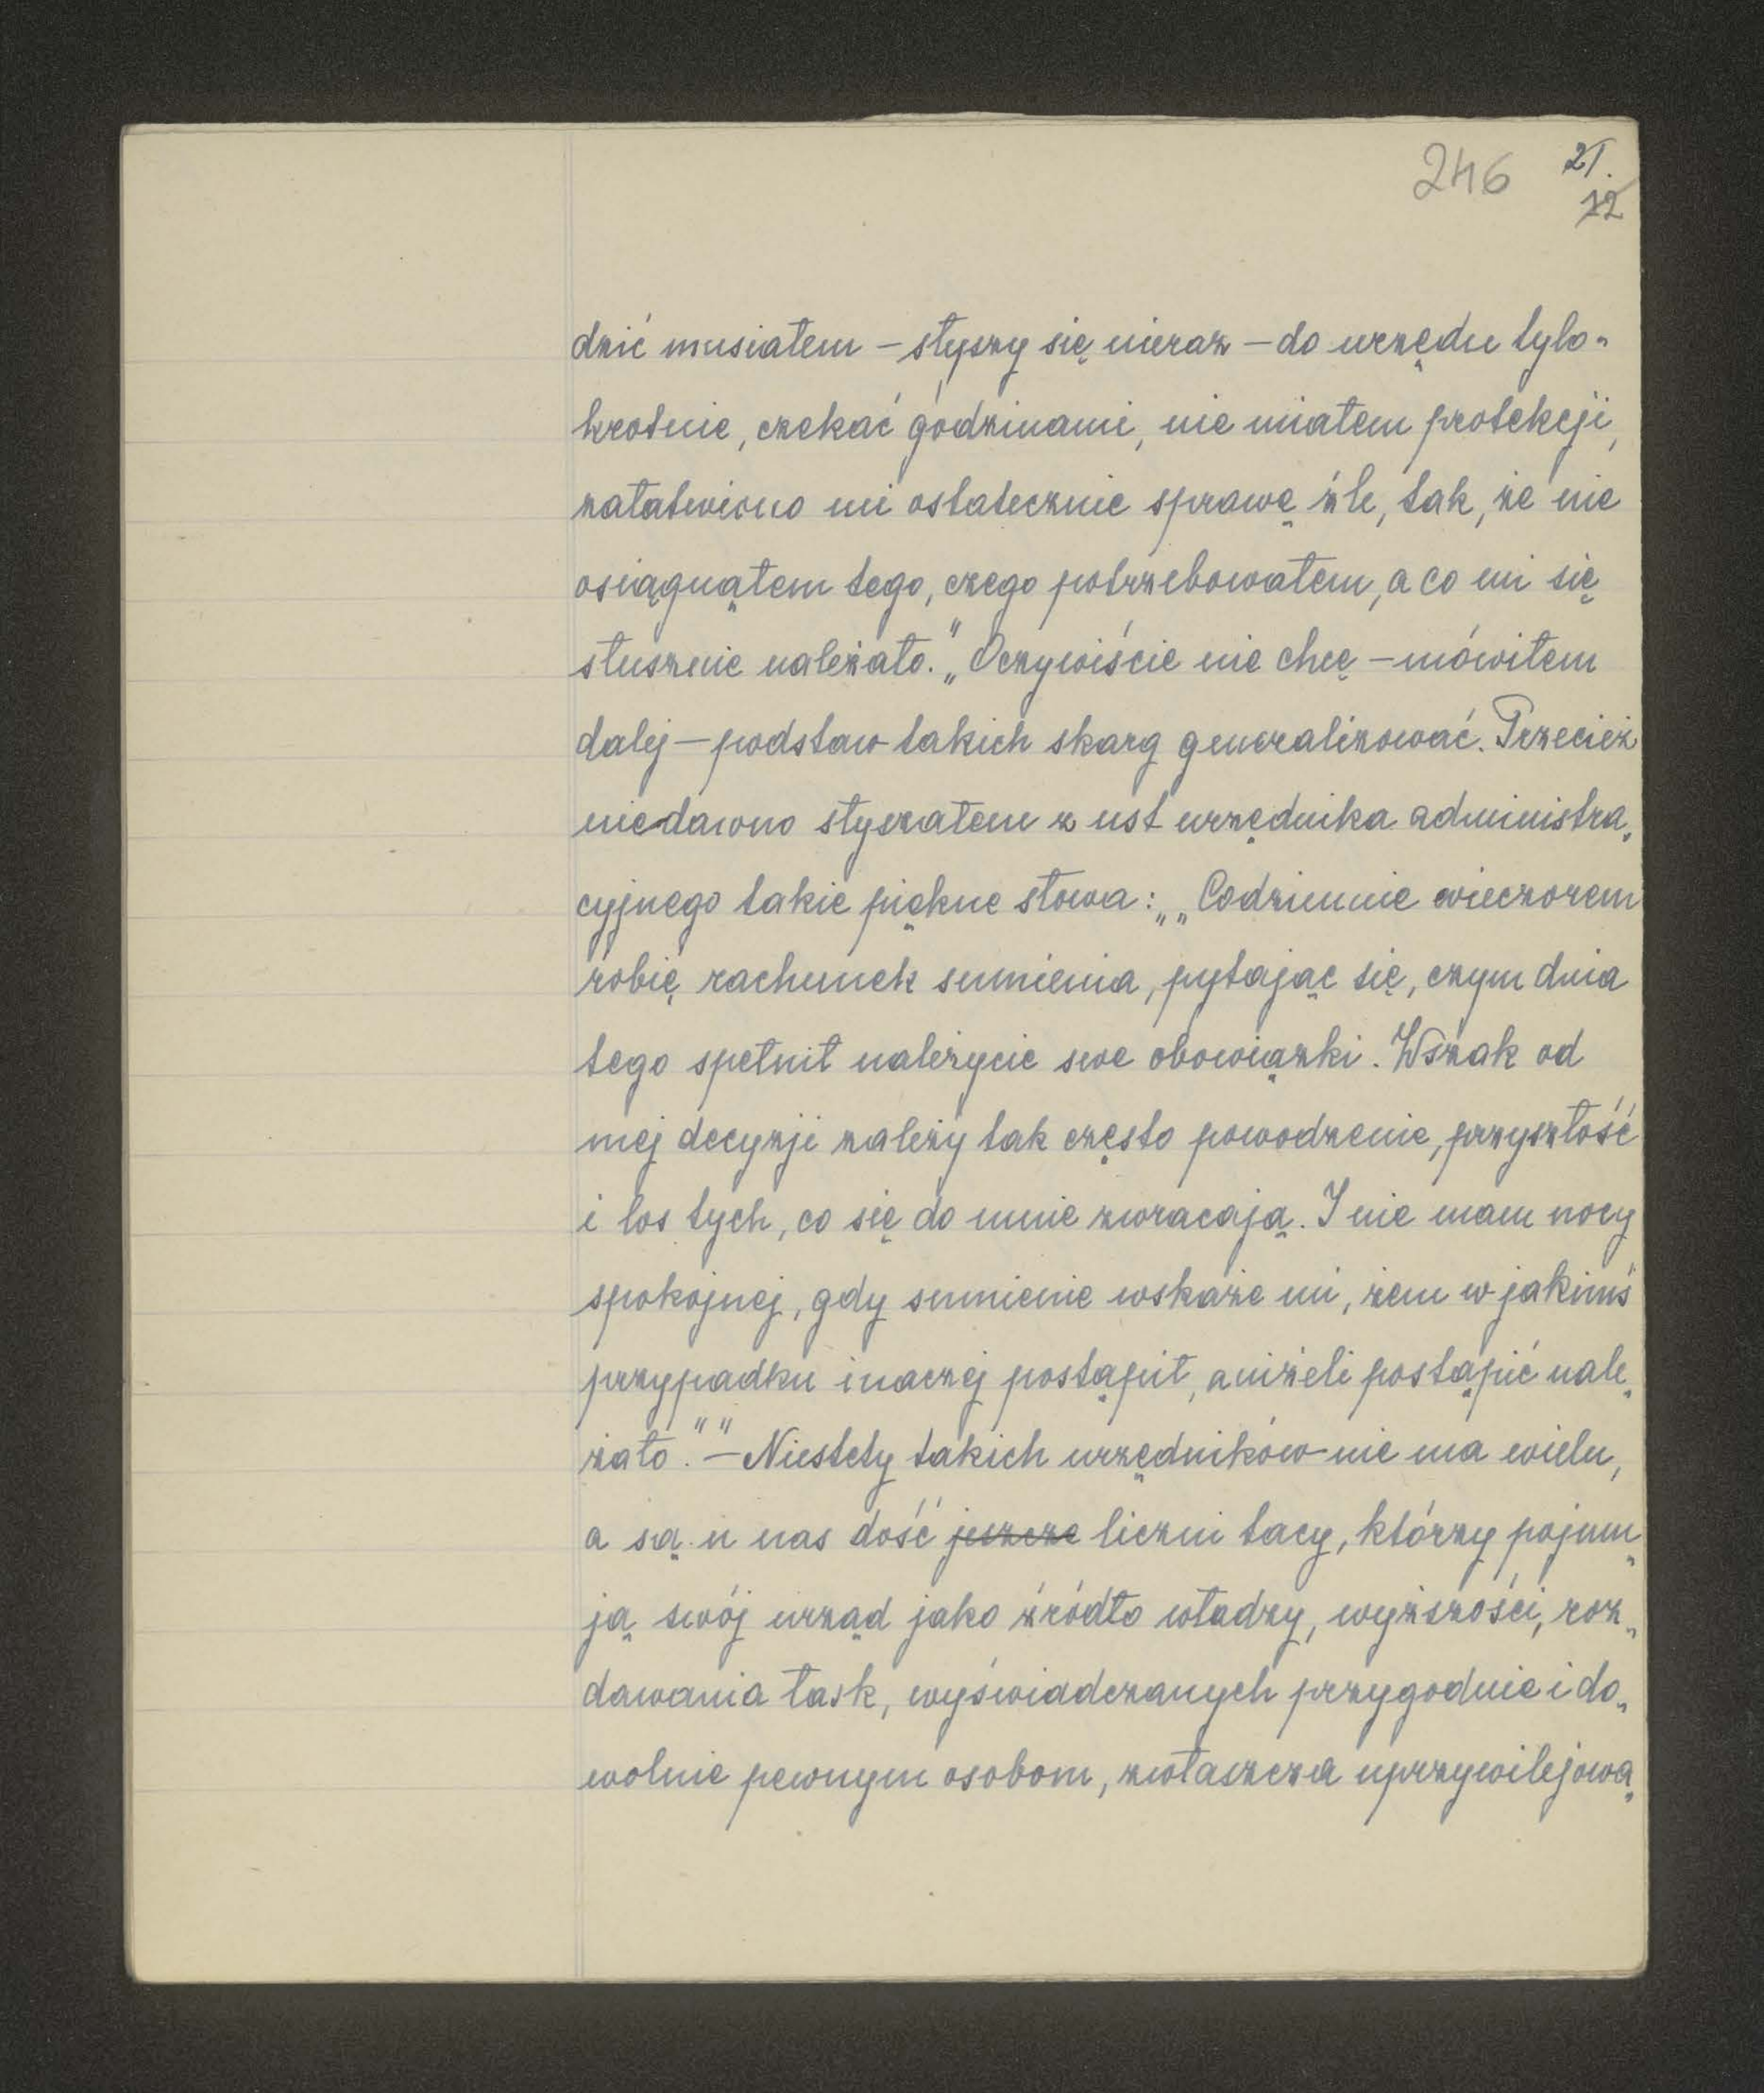 246 21.
12
dzić musiałem – słyszy się nieraz – do urzędu tylo-
krotnie, czekać godzinami, nie miałem protekcji,
załatwiono mi ostatecznie sprawę źle, tak, że nie
osiągnąłem tego, czego potrzebowałem, a co mi się
słusznie należało." „Oczywiście nie chcę – mówiłem
dalej – podstaw takich skarg generalizować. Przecież
niedawno słyszałem z ust urzędnika administra„
cyjnego takie piękne słowa: „„Codziennie wieczorem
robię rachunek sumienia, pytając się, czym dnia
tego spełnił należycie swe obowiązki. Wszak od
mej decyzji zależy tak często powodzenie, przyszłość
i los tych, co się do mnie zwracają. I nie mam nocy
spokojnej, gdy sumienie wskaże mi, żem w jakimś
przypadku inaczej postąpił, aniżeli postąpić nale„
żało."" – Niestety takich urzędników nie ma wielu,
a są u nas dość jeszcze liczni tacy, którzy pojmu„
ją swój urząd jako źródło władzy, wyższości, roz„
dawania łask, wyświadczanych przygodnie i do„
wolnie pewnym osobom, zwłaszcza uprzywilejowa„